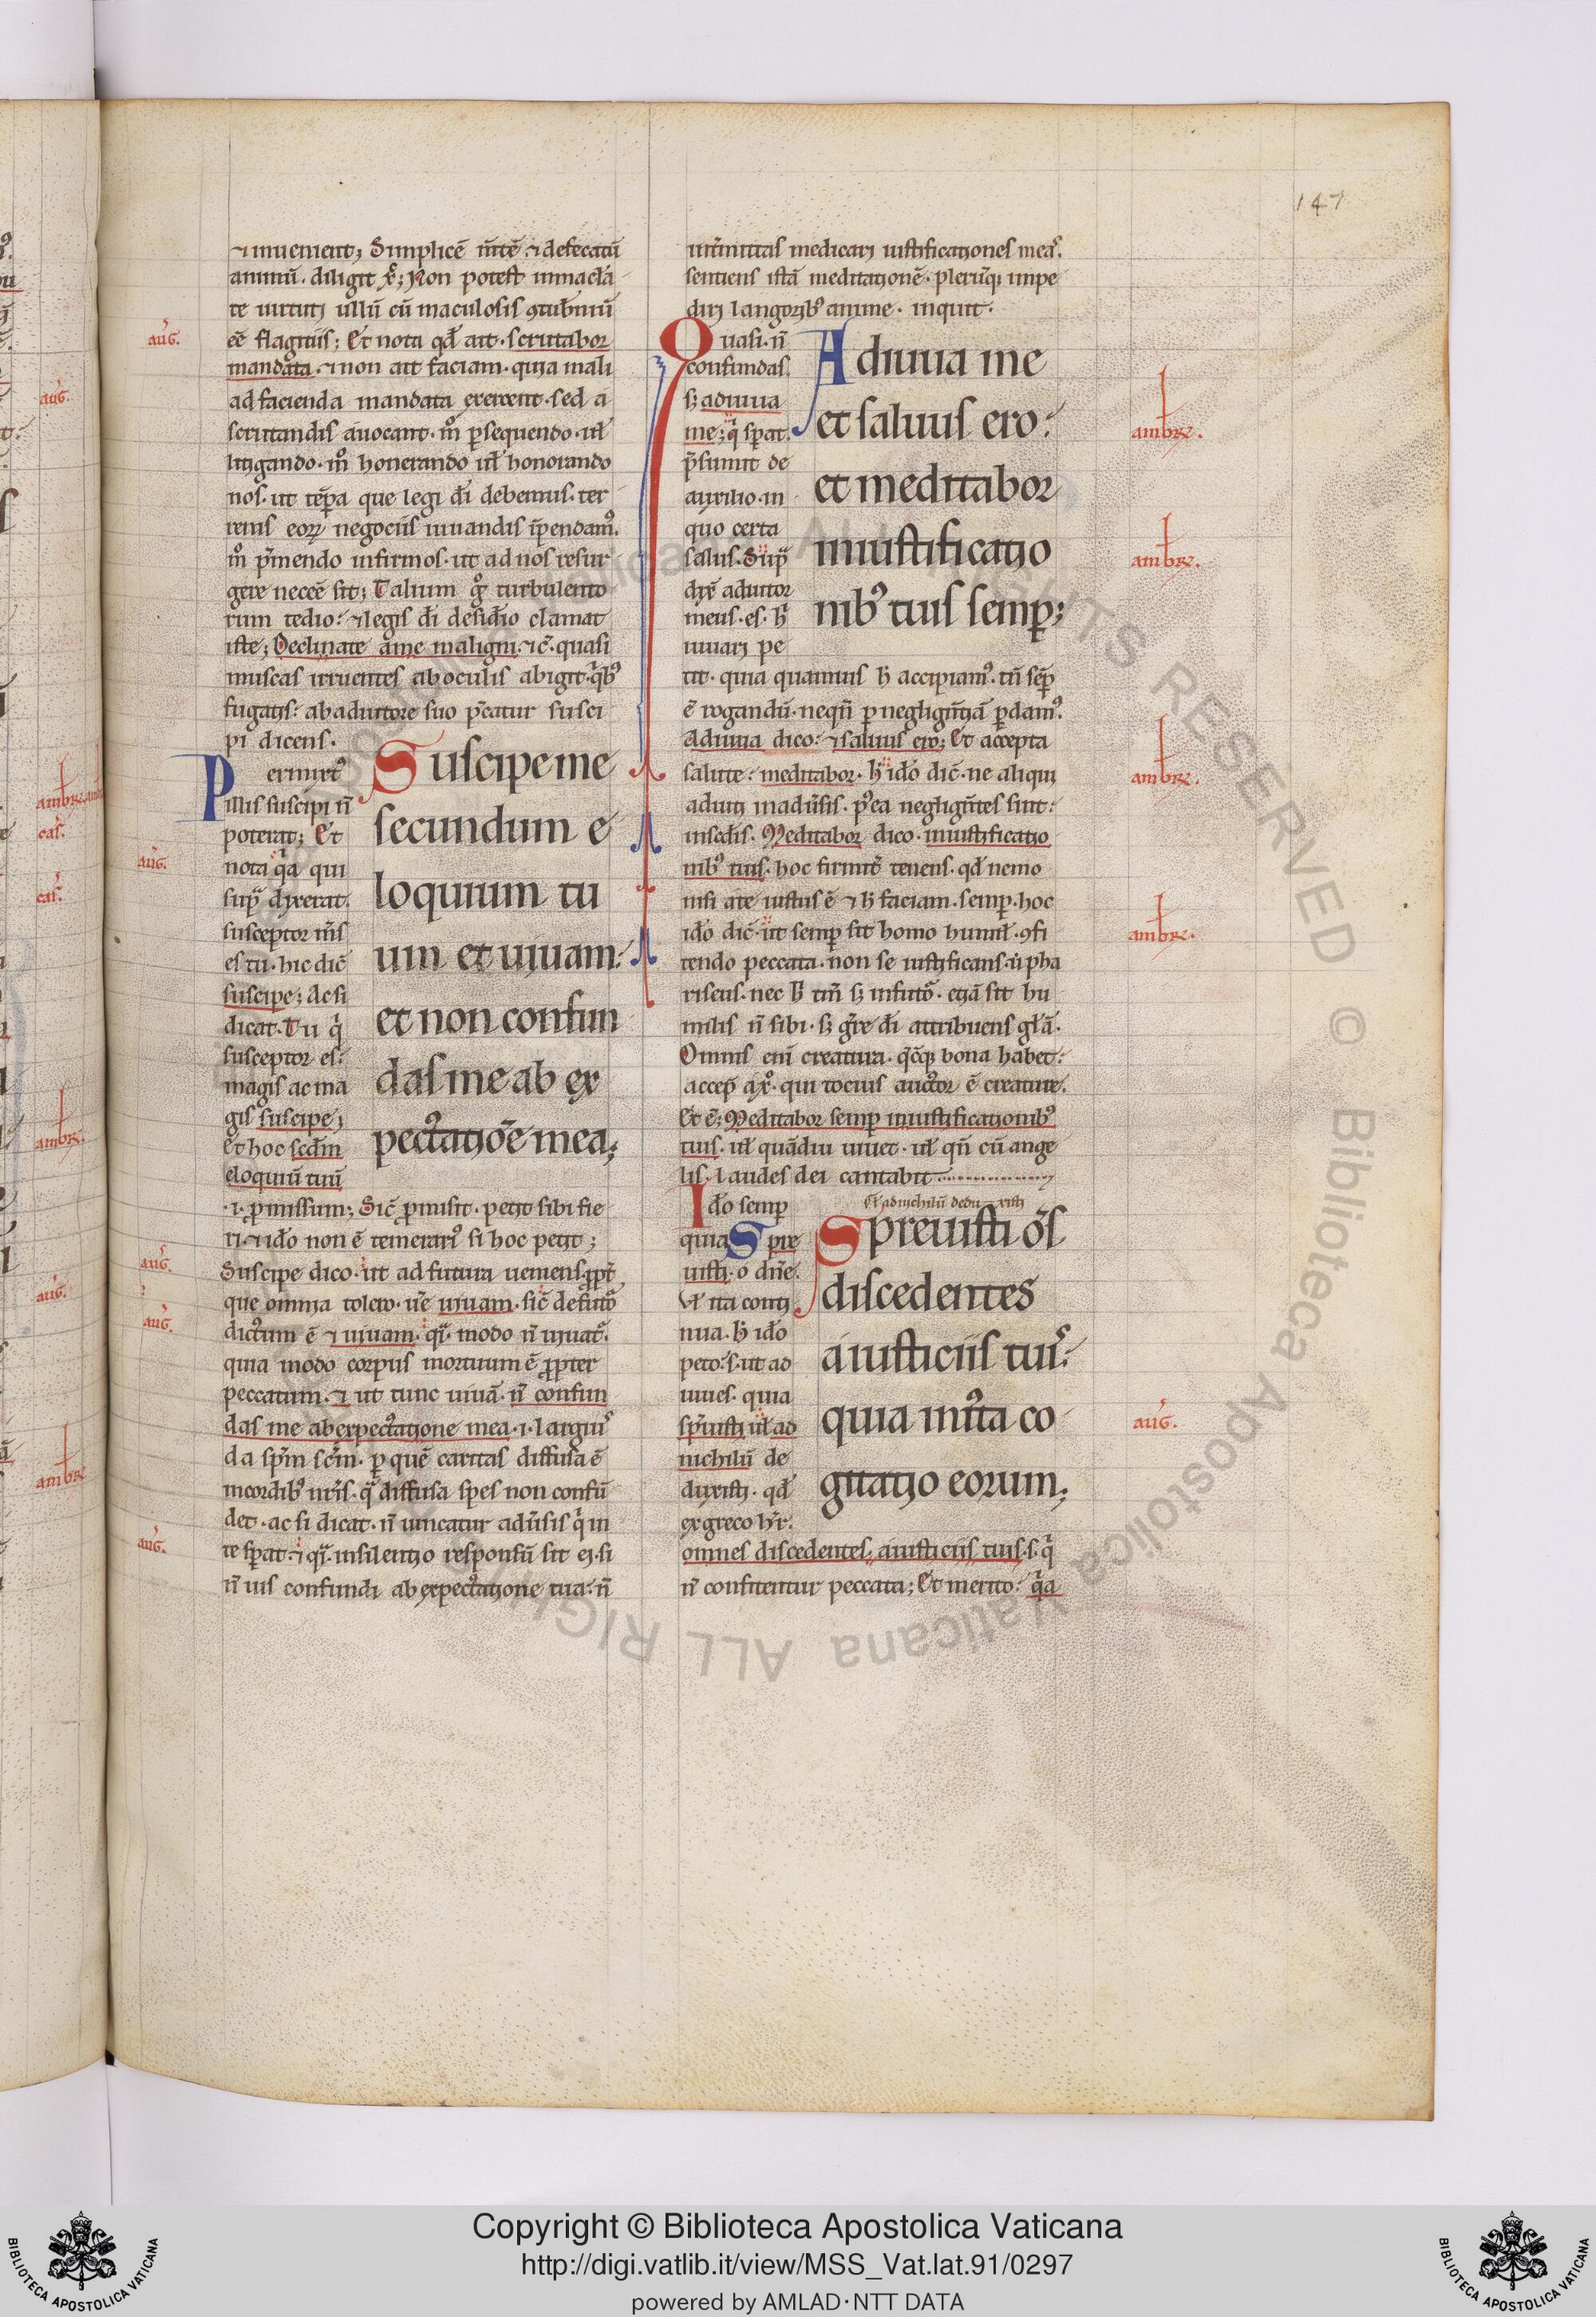 147
⁊ inuenient; Simplicē m̄tē ⁊ defecatū
animū· diligit x̄; Non potest inmacła
te uirtuti ullū cū maculosis ꝯtub̄niū
aug̃.
ēē flagitiis; Et nota qđ ait· scrutabor
mandata· ⁊ non ait faciam· quia mali
ad facienda mandata exercent· sed a
scrutandis auocant· m̊ ꝑsequendo· uł
litigando· m̊ honerando uł honorando
nos· ut tēpa que legi đi debemus· ter
renis eoꝝ negociis iuuandis īpendamꝰ
m̊ p̄mendo infirmos· ut ad nos resur
gere neceē sit; Talium g̊ turbulento
rum tedio: ⁊ legis đi desiđio clamat
iste; Declinate a me maligni· ⁊c̄· quasi
muscas irruentes ab oculis abigit· q̄bꝰ
fugatis: ab adiutore suo p̄catur susci
pi dicens·
P ermixtꝰ
illis suscipi n̄
poterat; Et
aug̃.
nota q̄a qui
sup̄ dixerat·
susceptor m̄s
es tu· hic dic̄
suscipe; Ac si
dicat· Tu q̄
susceptor es:
magis ac ma
gis suscipe;
Et hoc scdm̄
eloquiū tuū
Suscipe me
secundum e
loquium tu
um et uiuam:
et non confun
das me ab ex
pectatiōe mea;
·i· ꝓmissum; Sic̄ ꝓmisit· petit sibi fie
ri· ⁊ iđo non ē temerariꝰ si hoc petit;
aug̃.
Suscipe dico· ut ad futura ueniens· ꝓpt̄
que omnia tolero· uēe uiuam· sic̄ de futo᷑
aug̃.
dictum ē ⁊ uiuam· qͥ modo n̄ uiuat᷑·
quia modo corpus mortuum ē ꝓpter
peccatum· ⁊ ut tunc uiuā· n̄ confun
das me ab expectatione mea· i· largiꝰ
da sp̄m sc̄m· ꝑ quē caritas diffusa ē
in cordibꝰ nr̄is· q̄ diffusa spes non confū
det· ac si dicat· n̄ uincatur adūsis q̄ in
aug̃.
te sp̄at· ⁊ qͥ in silentio responsū sit ei· si
n̄ uis confundi ab expectatione tua: n̄
int̄mittas medicari iustificationes meas·
sentiens istā meditationē· pleruq; inpe
diri langoribꝰ anime· inquit·
Q uasi· n̄
confundas·
s; adiuua
me; q̄ sp̄at·
p̄sumit de
auxilio· in
quo certa
salus· Sup̄
dix̄ adiutor
meus· es· h̄
iuuari pe
Adiuua me
et saluus ero:
et meditabor
in iustificatio
nibꝰ tuis semꝑ;
ambꝛ.
ambꝛ.
tit· quia quamuis h̄ accipiamꝰ· tn̄ seꝑ
ē rogandū· nequn̄ ꝑ neglign̄tiā ꝑdamꝰ·
Adiuua dico: ⁊ saluus ero; Et accepta
ambꝛ.
salute: meditabor· h̄ iđo dic̄· ne aliqui
aduti in adūsis· p̄ea neglign̄tes sint:
in sedis· Meditabor dico· in iustificatio
nibꝰ tuis· hoc firmit̄ tenens· qđ nemo
nisi a te iustus ē ⁊ h̄ faciam· semꝑ· hoc
ambꝛ.
iđo dic̄· ut semꝑ sit homo humił· ꝯfi
tendo peccata· non se iustificans· ū pha
riseus· nec h̄ tm̄ s; in futo᷑· etiā sit hu
milis n̄ sibi· s; gr̄e đi attribuens głā·
Omnis eni creatura· q̄cq; bona habet:
accep̄ a x̊· qui tocius auctor ē creature·
Et ē; Meditabor semꝑ in iustificationibꝰ
tuis· uł quādiu uiuet· uł qn̄ cū ange
lis· laudes dei cantabit
I đo semꝑ
quia Spre
uisti· o dn̄e·
Vł ita conti
nua· h̄ iđo
peto: s· ut ad
iuues· quia
sp̄uisti uł ad
nichilū de
duxisti· qđ
ex greco hr̄·
ł ad nichilū dedu xisti
Spreuisti ōs
discedentes
a iusticiis tuis:
quia iniͧta co
gitatio eorum;
aug̃.
omnes discedentes a iusticiis tuis· s· q̄
n̄ confitentur peccata; Et merito: q̄a
Copyright © Biblioteca Apostolica Vaticana
http://digi.vatlib.it/view/MSS_Vat.lat.91/0297
powered by AMLAD·NTT DATA
BIBLIOTECA APOSTOLICA VATICANA
BIBLIOTECA APOSTOLICA VATICANA